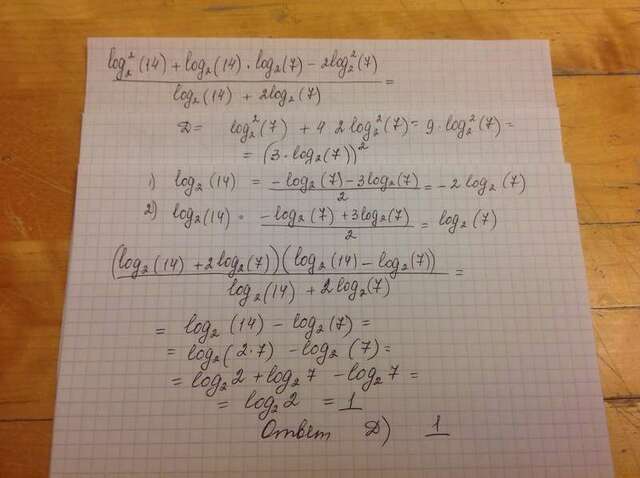 log₂²(14) + log₂(14) · log₂(7) − 2log₂²(7)
log₂(14) + 2log₂(7) =
D = log₂²(7) + 4 · 2 log₂²(7) = 9 · log₂²(7) =
= (3 · log₂(7))²
1) log₂(14) = (−log₂(7) − 3log₂(7))/2 = −2 log₂(7)
2) log₂(14) = (−log₂(7) + 3log₂(7))/2 = log₂(7)
(log₂(14) + 2log₂(7))(log₂(14) − log₂(7))
log₂(14) + 2log₂(7) =
= log₂(14) − log₂(7) =
= log₂(2·7) − log₂(7) =
= log₂2 + log₂7 − log₂7 =
= log₂2 = 1
Ответ D) 1